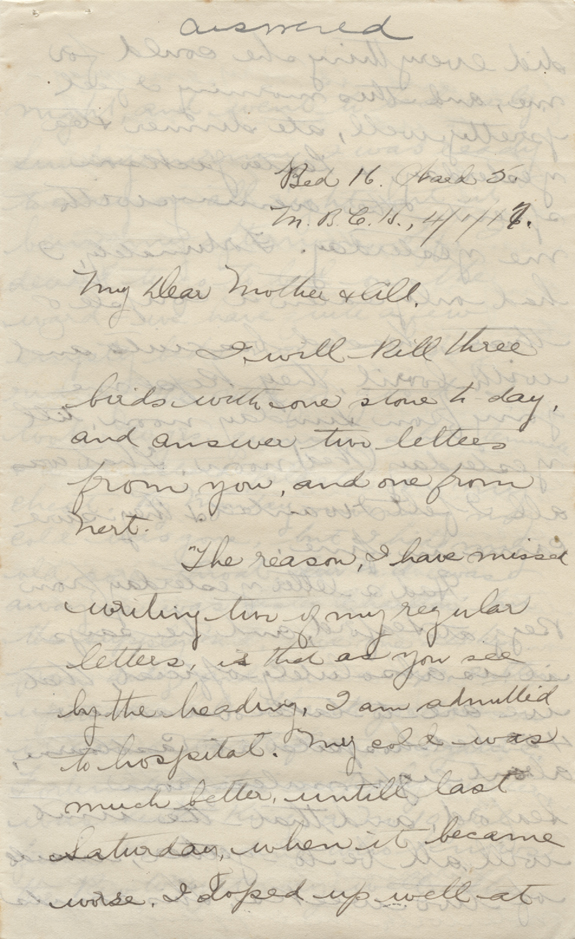 answered
Bed 16. Ward 5
M.B.C.H., 4/1/17.
My Dear Mother & All.
I will kill three
birds with one stone to day,
and answer two letters
from you, and one from
Nert.
The reason, I have missed
writing two of my regular
letters, is that as you see
by the heading, I am admitted
to hospital. My cold was
much better, untill last
Saturday, when it became
worse. I doped up well at